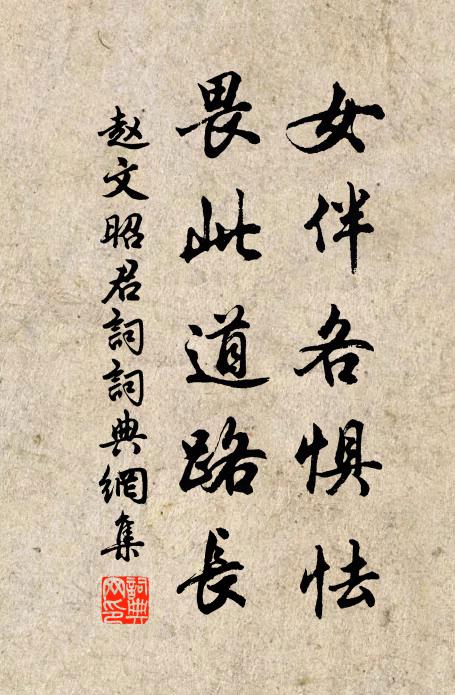 女伴各惧怯
畏此道路長
赵文昭君詞詞典網集
詞典
网印